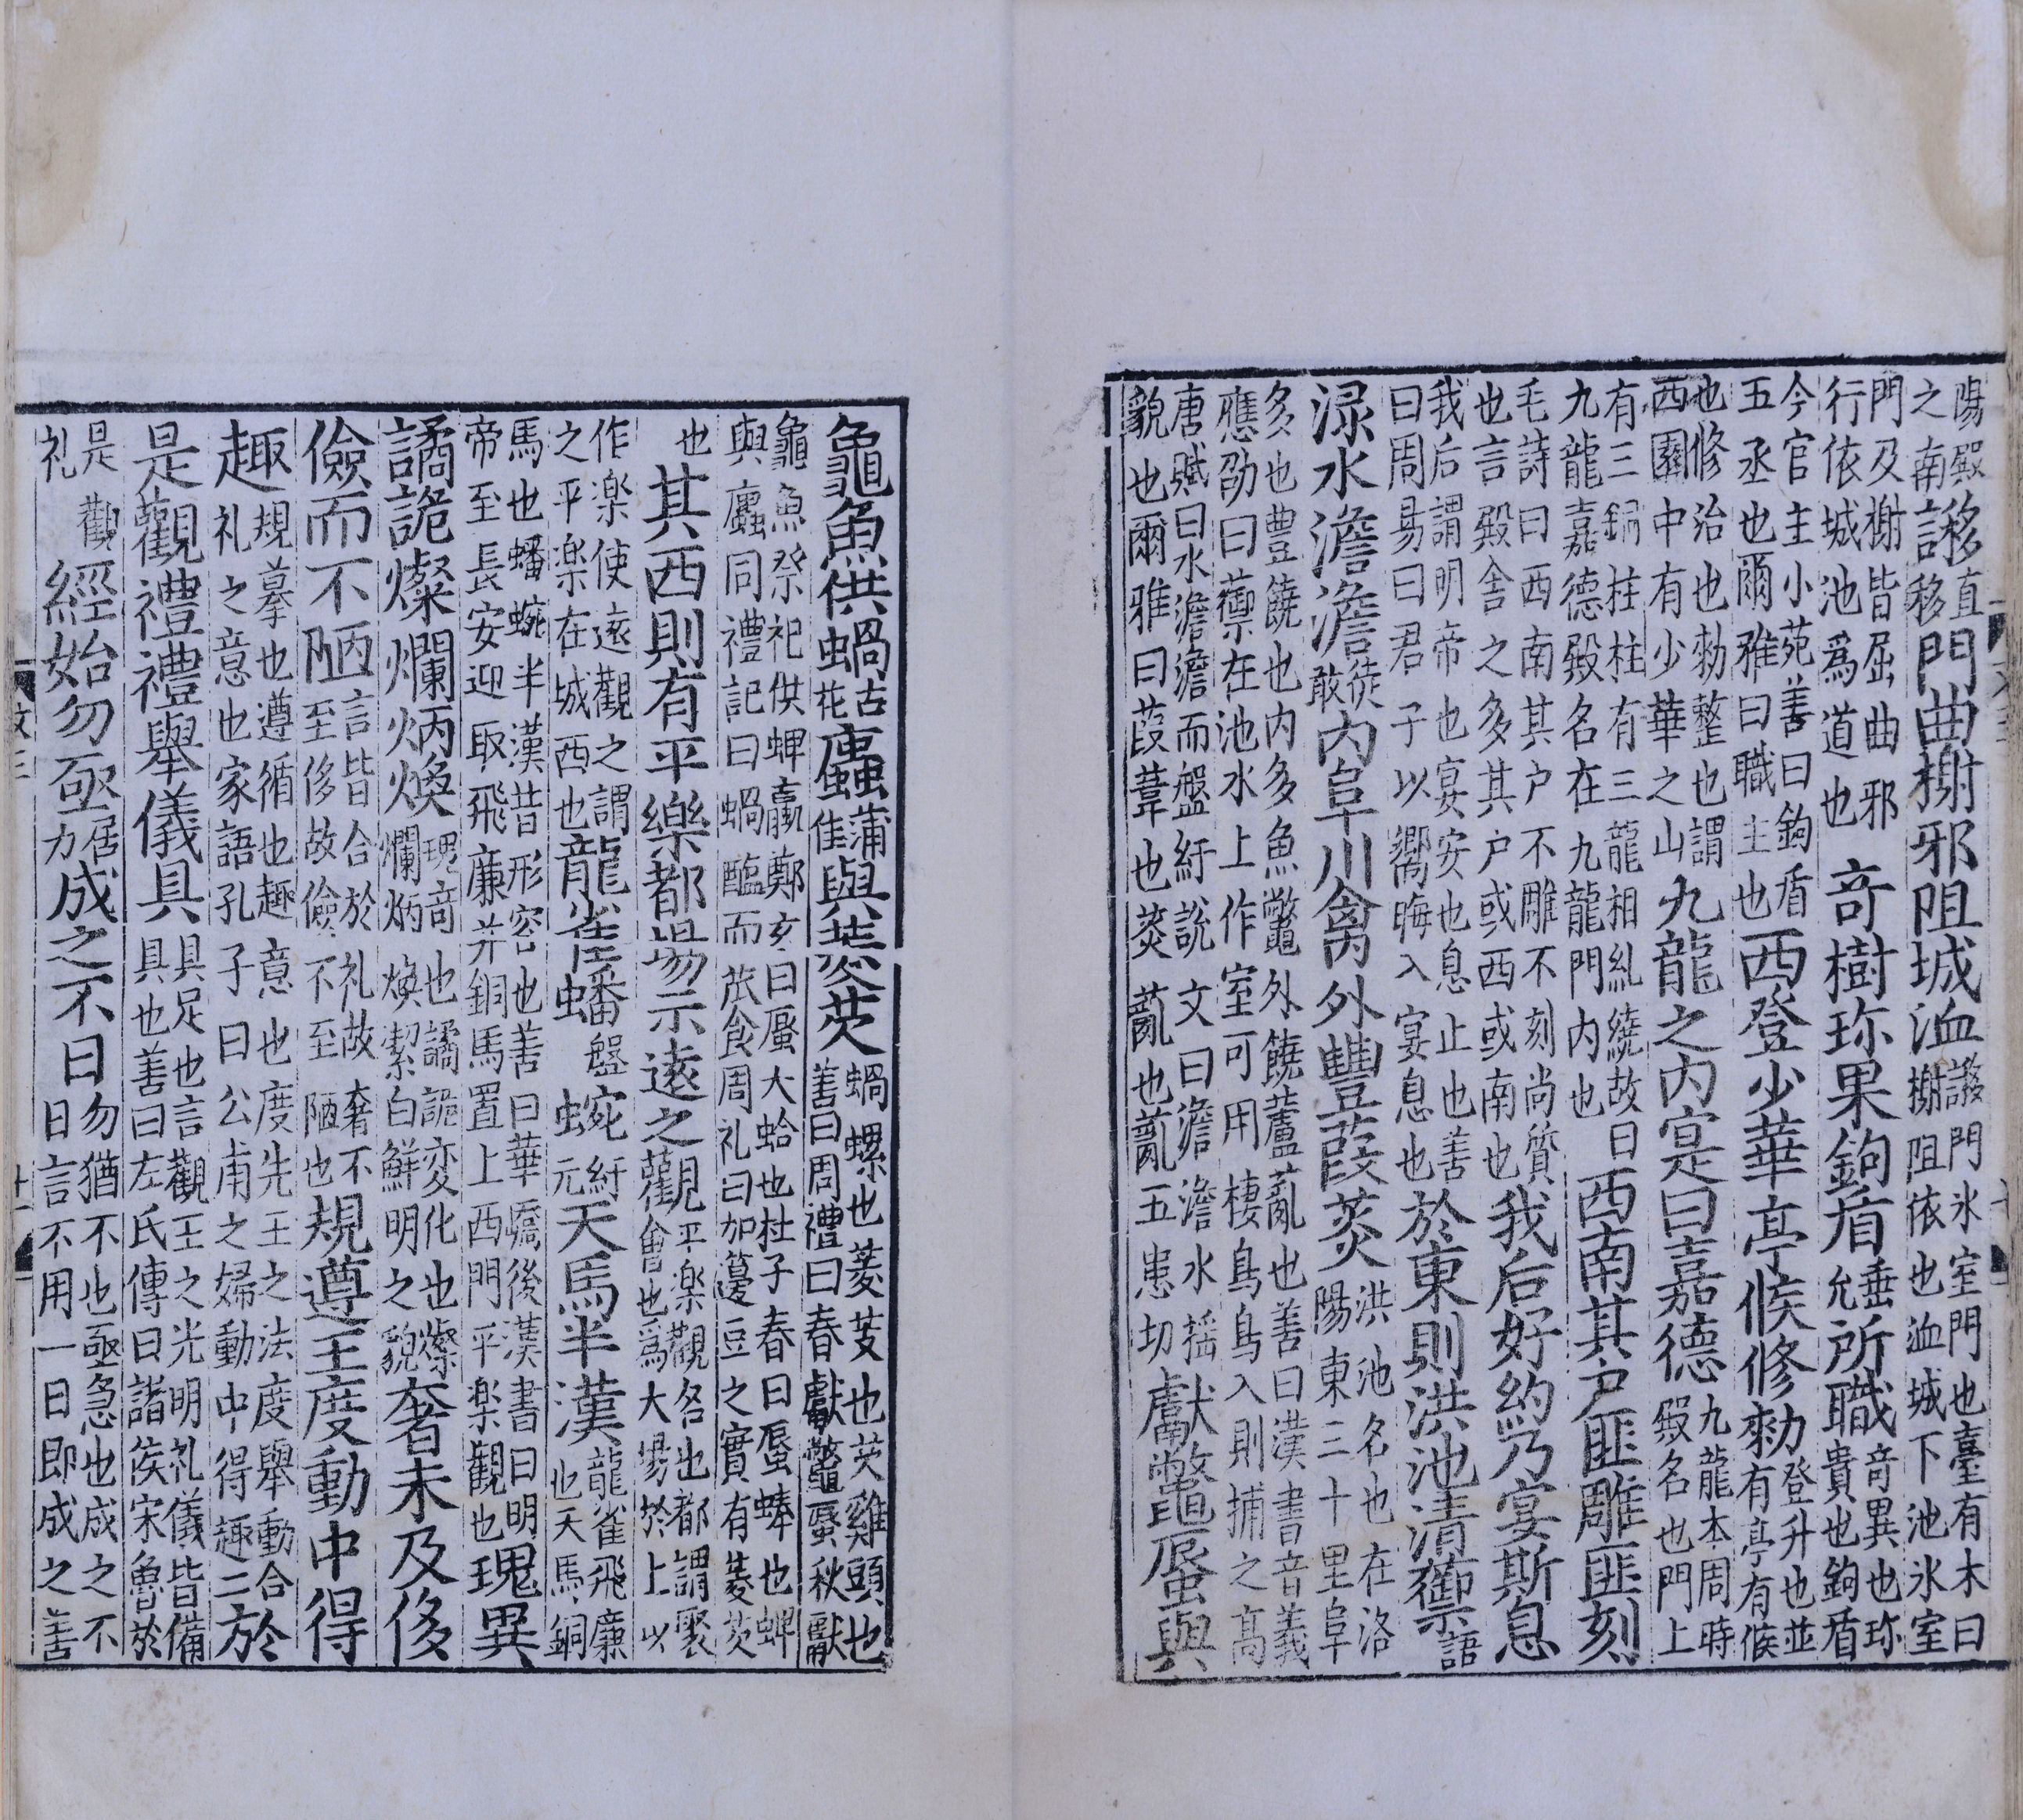 陽殿之南謻直移門曲榭邪阻城洫謻門氷室門也臺有木曰榭阻依也洫城下池氷室
門及榭皆屈曲邪行依城池爲道也奇樹珎果鉤盾垂允所職竒異也珎貴也鉤盾
今官主小苑善曰鉤盾五丞也爾雅曰職主也西登少華亭候修勑登升也並有亭有候
也修治也勑整也謂西園中有少華之山九龍之内寔曰嘉德九龍本周時殿名也門上
有三銅柱柱有三龍相糺繞故曰九龍嘉德殿名在九龍門内也西南其户匪雕匪刻
毛詩曰西南其户不雕不刻尚質也言殿舍之多其户或西或南也我后好約乃宴斯息
我后謂明帝也宴安也息止也善曰周易曰君子以嚮晦入宴息也於東則洪池清籞語
渌水澹澹徒敢内阜川禽外豐葭菼洪池名也在洛陽東三十里阜
多也豊饒也内多魚鼈外饒蘆薍也善曰漢書音義應劭曰籞在池水上作室可用棲鳥鳥入則捕之髙
唐賦曰水澹澹而盤紆說文曰澹澹水揺貌也爾雅曰葭葦也菼薍也薍五患切獻鼈蜃與
龜魚供蝸古花蠯蒲佳與菱芡蝸螺也菱芰也芡雞頭也善曰周禮曰春獻鼈蜃秋獻
龜魚祭祀供蜱蠃鄭玄曰蜃大蛤也杜子春曰蜃蜯也蜱與蠯同禮記曰蝸醢而苽食周礼曰加籩豆之實有菱芡
也其西則有平樂都場示遠之觀平楽觀名也都謂聚會也爲大場於上以
作楽使遠觀之謂之平楽在城西也龍雀蟠盤蜿紆元天馬半漢龍雀飛廉也天馬銅
馬也蟠蜿半漢皆形容也善曰華嶠後漢書曰明帝至長安迎取飛廉并銅馬置上西門平楽觀也瑰異
譎詭燦爛炳煥瑰竒也譎詭変化也燦爛炳煥絜白鮮明之貌奢未及侈
儉而不陋言皆合於礼故奢不至侈故儉不至陋也規遵王度動中得
趣規摹也遵循也趣意也度先王之法度舉動合礼之意也家語孔子曰公甫之婦動中得趣二於
是觀禮禮舉儀具具足也言觀王之光明礼儀皆備具也善曰左氏傳曰諸侯宋魯於
是觀礼經始勿亟居力成之不日勿猶不也亟急也成之不日言不用一日即成之善